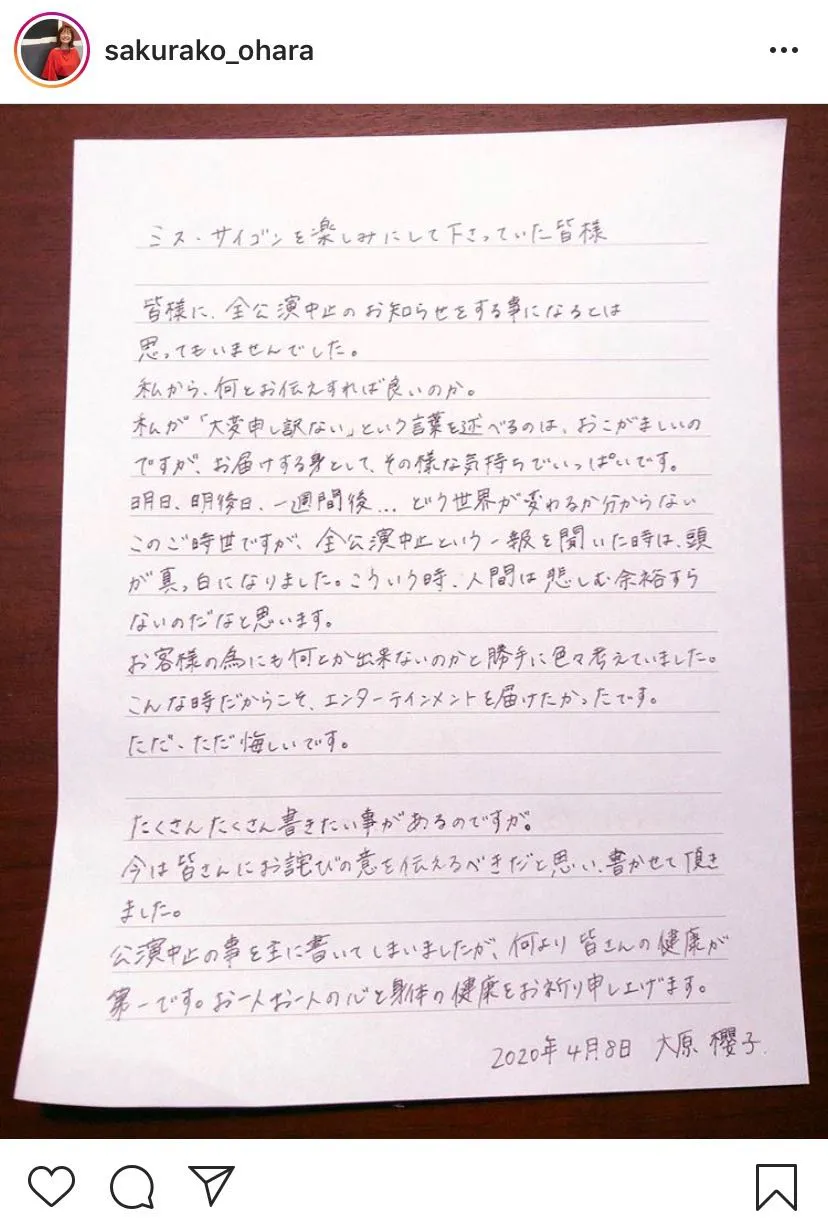 sakurako_ohara
ミス・サイゴンを楽しみにして下さっていた皆様
皆様に、全公演中止のお知らせをする事になるとは
思ってもいませんでした。
私から、何とお伝えすれば良いのか。
私が「大変申し訳ない」という言葉を述べるのは、おこがましいの
ですが、お届けする身として、その様な気持ちでいっぱいです。
明日、明後日、一週間後...どう世界が変わるか分からない
このご時世ですが、全公演中止という一報を聞いた時は、頭
が真っ白になりました。こういう時、人間は悲しむ余裕すら
ないのだなと思います。
お客様の為にも何とか出来ないのかと勝手に色々考えていました。
こんな時だからこそ、エンターテインメントを届けたかったです。
ただ、ただ悔しいです。
たくさんたくさん書きたい事があるのですが。
今は皆さんにお詫びの意を伝えるべきだと思い、書かせて頂き
ました。
公演中止の事を主に書いてしまいましたが、何より皆さんの健康が
第一です。お一人お一人の心と身体の健康をお祈り申し上げます。
2020年4月8日 大原 櫻子